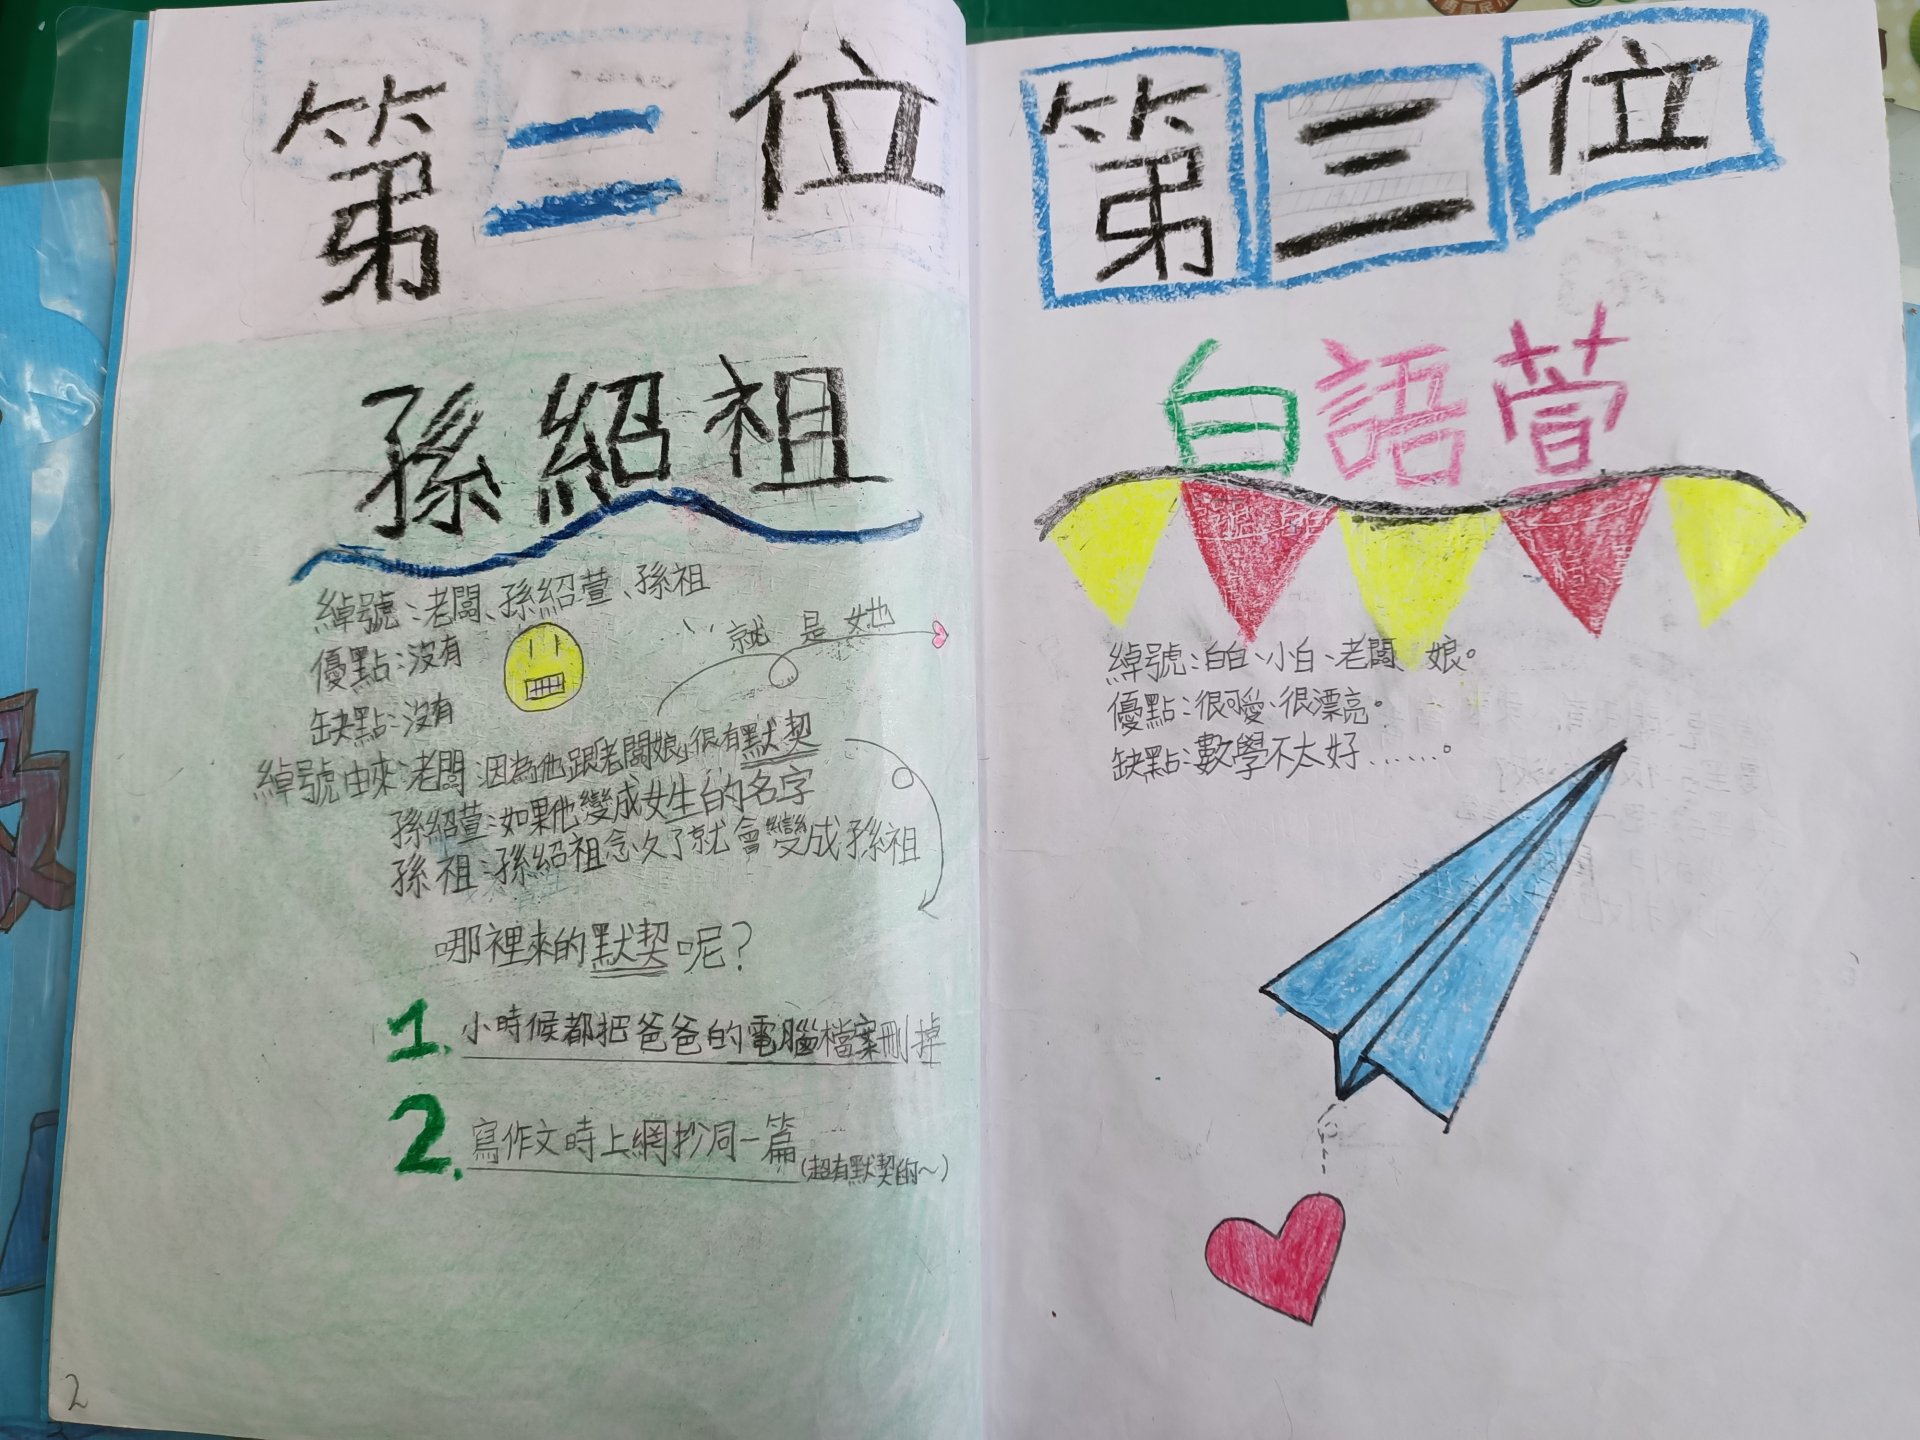 第二位
孫紹祖
綽號：老闆、孫紹萱、孫祖
優點：沒有
缺點：沒有
就是她
綽號由來：老闆：因為他跟「老闆娘」很有默契
孫紹萱：如果他變成女生的名字
孫祖：孫紹祖念久了就會變成孫祖
哪裡來的默契呢？
1. 小時候都把爸爸的電腦檔案刪掉
2. 寫作文時上網抄同一篇(超有默契的～)
2
第三位
白語萱
綽號：白白、小白、老闆娘。
優點：很可愛、很漂亮。
缺點：數學不太好……。